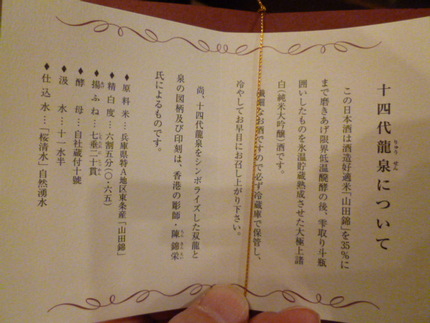 十四代龍泉について
りゅう せん
この日本酒は酒造好適米「山田錦」を35%に
まで磨きあげ限界低温醗酵の後、雫取り斗瓶
囲いしたものを氷温貯蔵熟成させた大極上諸
白(純米大吟醸)酒です。
繊細なお酒ですので必ず冷蔵庫で保管し、
冷やしてお早目にお召し上がり下さい。
尚、十四代龍泉をシンボライズした双龍と
泉の図柄及び印刻は、香港の彫師・陳錦栄
氏によるものです。
♦原料米…兵庫県特A地区東条産「山田錦」
♦精白度…六割五分(〇・六五)
♦揚ふね…七垂二十貫
♦酵母…自社蔵付十號
♦汲水…十一水半
♦仕込水…「桜清水」自然湧水